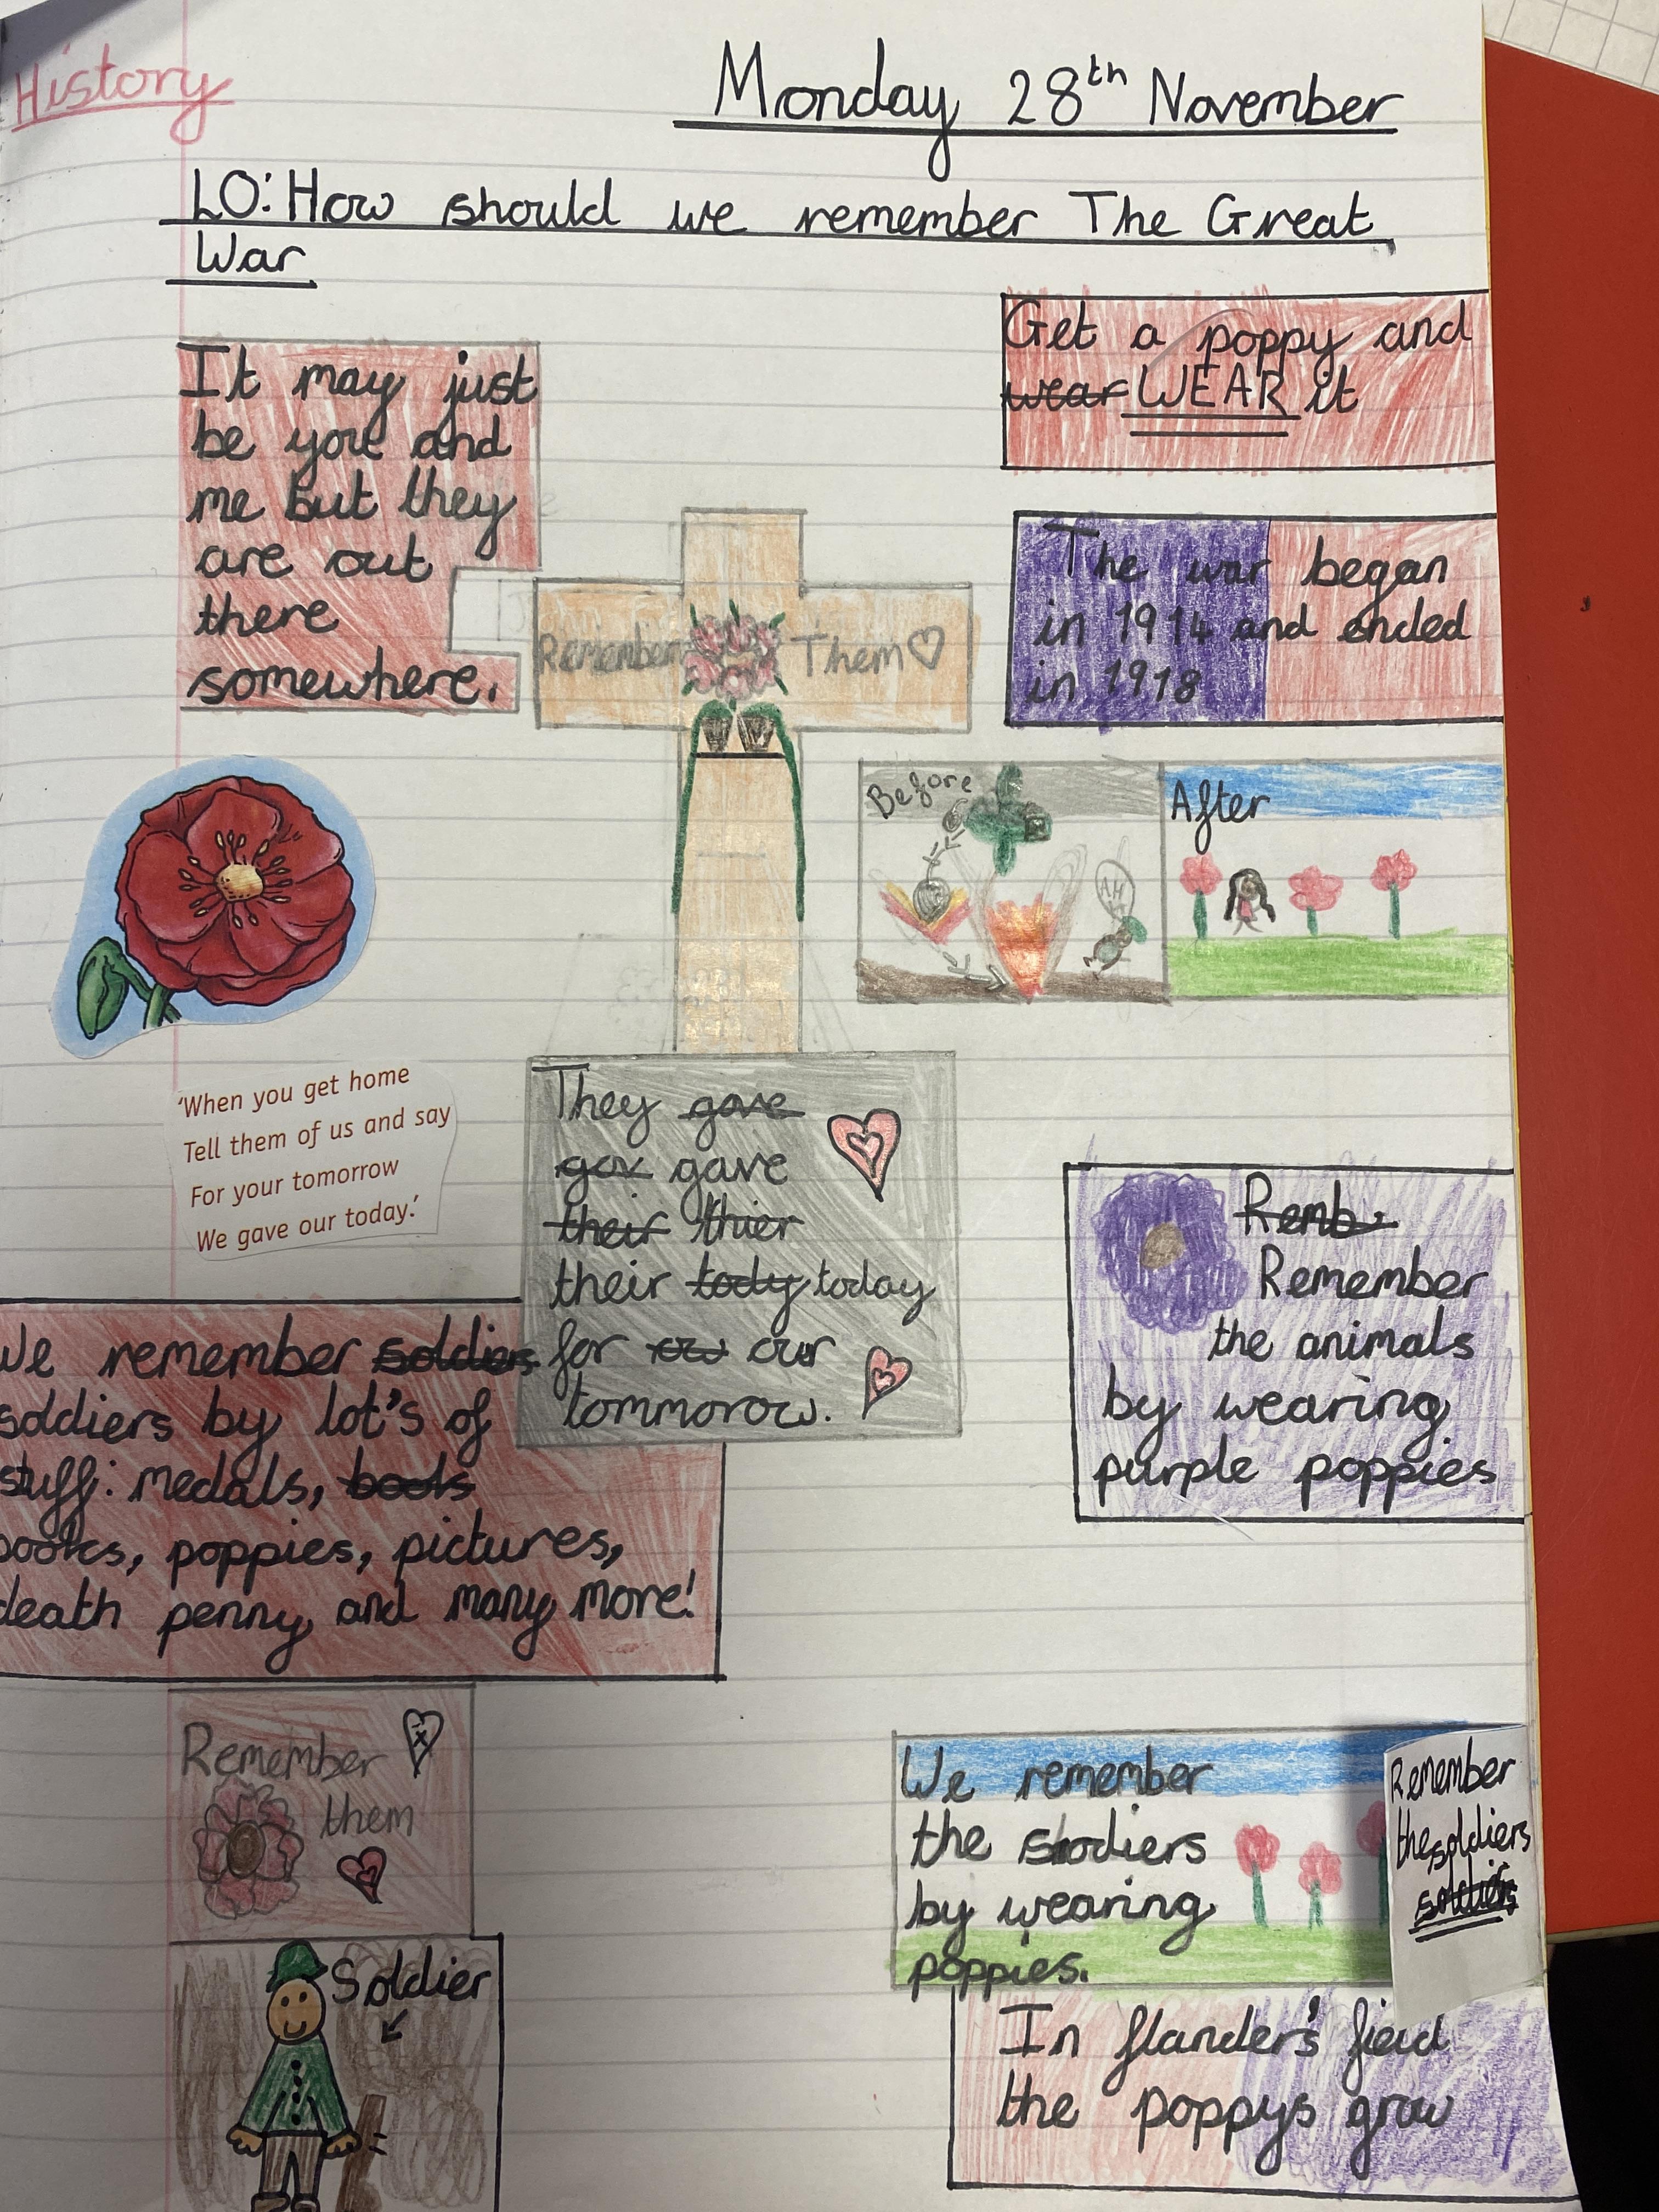 History
Monday 28th November
LO: How should we remember The Great
War
Get a poppy and
wear WEAR it
It may just
be you and
me but they
are out
there
somewhere.
The war began
in 1914 and ended
in 1918
Remember Them
Before
AH
After
'When you get home
Tell them of us and say
For your tomorrow
We gave our today.'
They gave
gav gave
their thier
their tody today
for our
tommorow.
Remb
Remember
the animals
by wearing
purple poppies
We remember soldiers
soldiers by lot's of
stuff: medals, books
books, poppies, pictures,
death penny, and many more!
Remember
them
Soldier
We remember
the
by wearing
poppies.
Remember
the soldiers
soldiers
In flander's field
the poppys grow